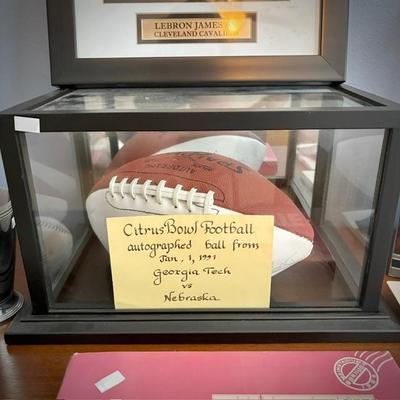 LEBRON JAMES
CLEVELAND CAVALIE
Citrus Bowl Football
autographed ball from
Jan, 1, 1991
Georgia Tech
vs
Nebraska